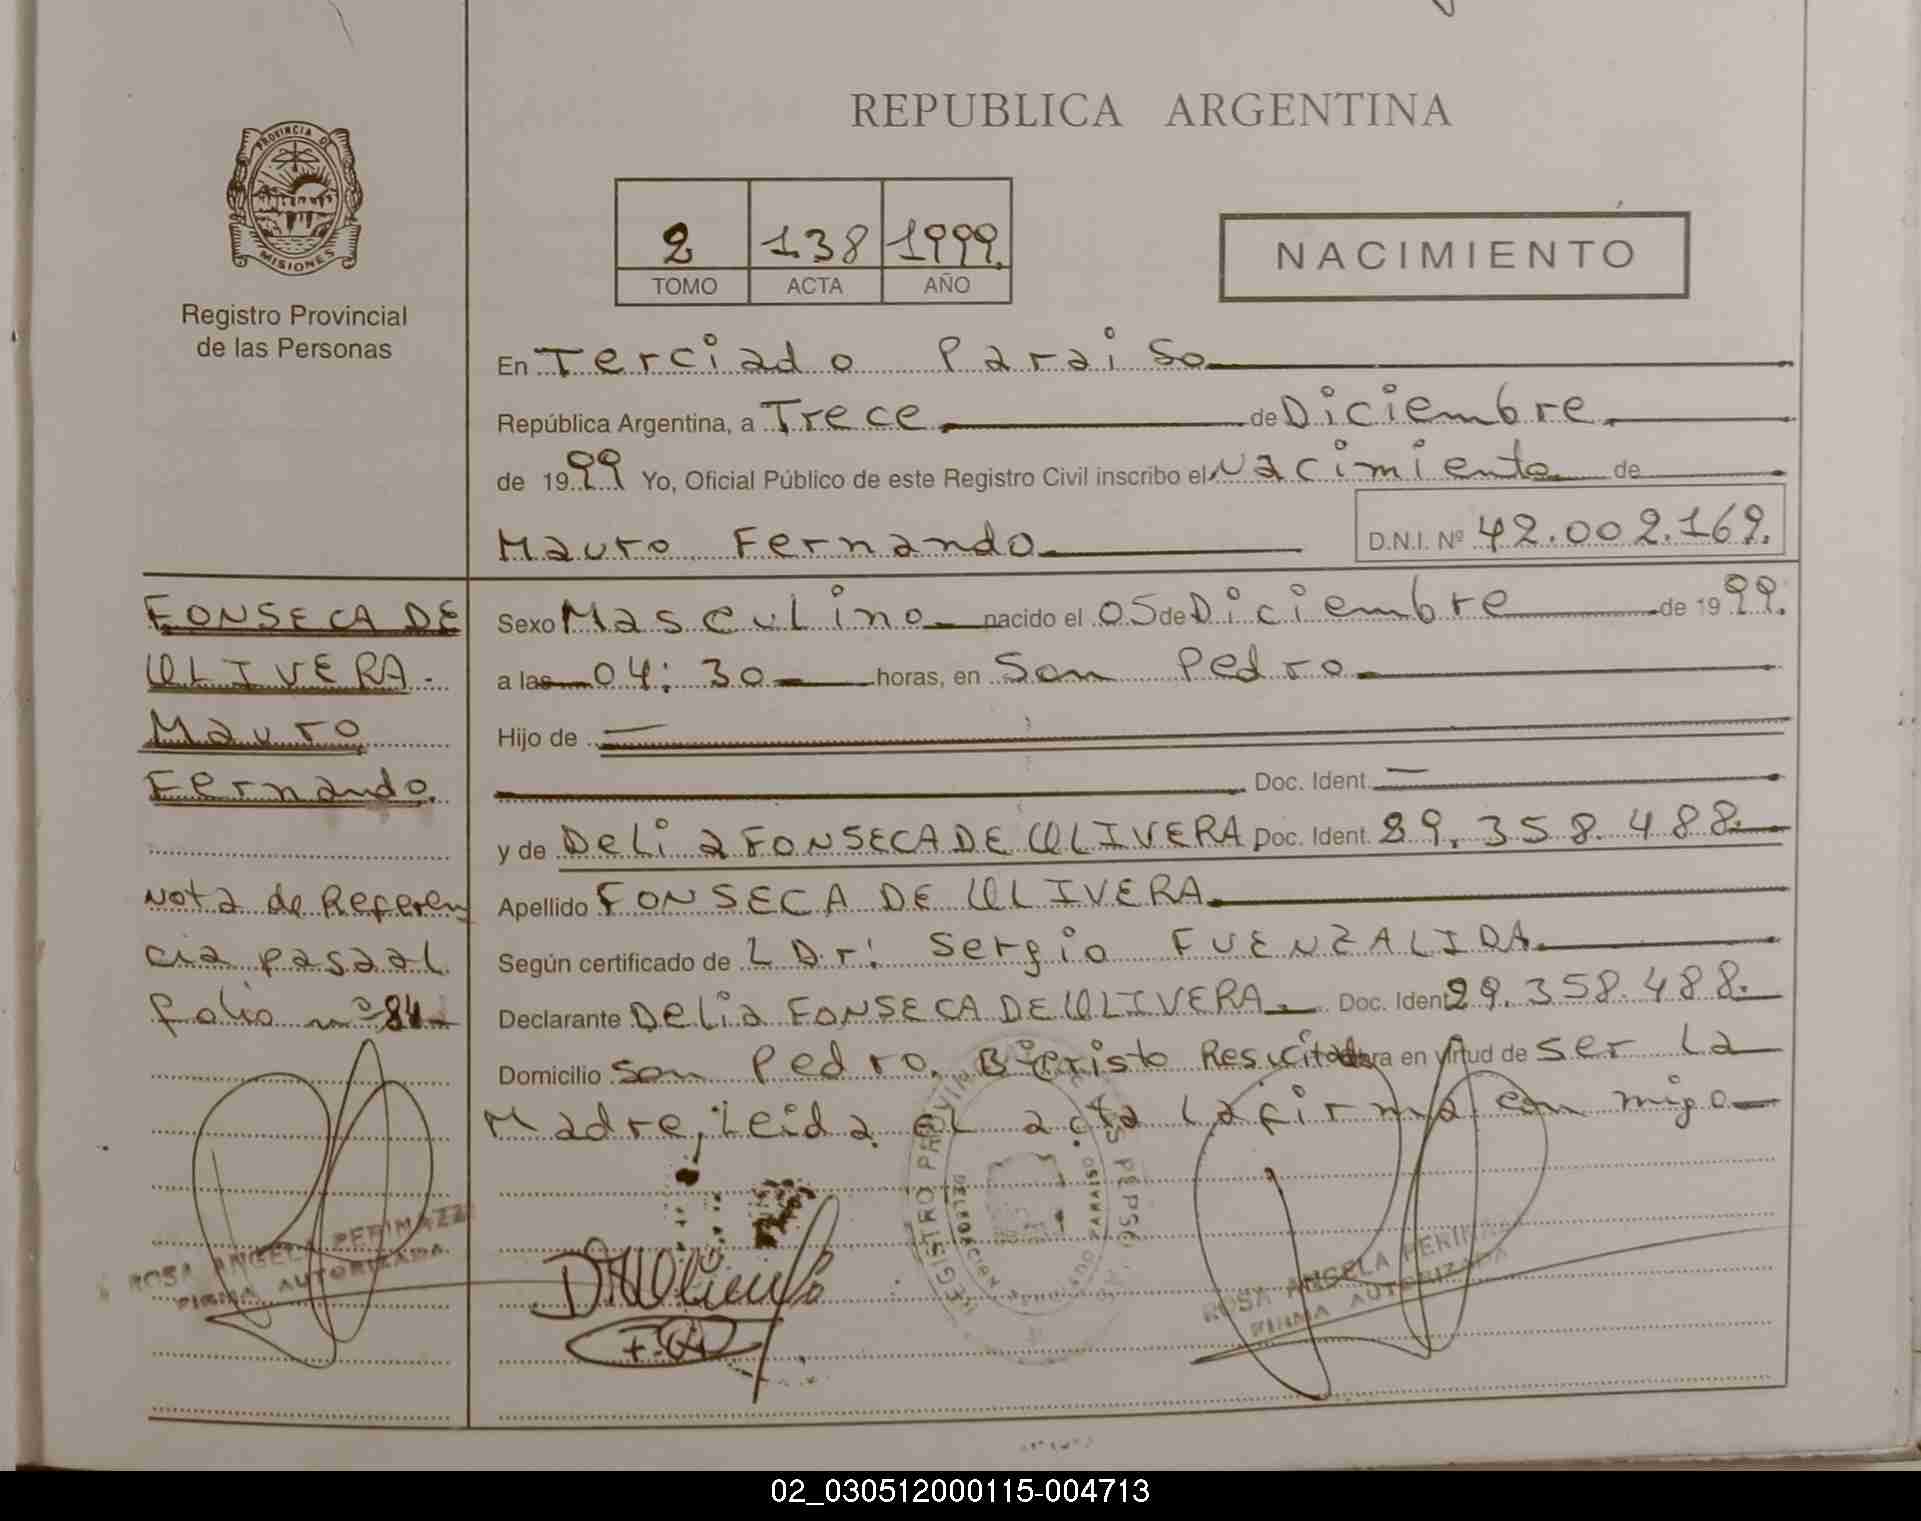 REPUBLICA ARGENTINA
PROVINCIA DE
MISIONES
Registro Provincial
de las Personas
2 138 1999.
TOMO ACTA AÑO
NACIMIENTO
En Terciado Paraiso
República Argentina, a Trece de Diciembre
de 1999 Yo, Oficial Público de este Registro Civil inscribo el Nacimiento de
Mauro Fernando D.N.I. Nº 42.002.169.
FONSECA DE
OLIVERA.
Mauro
Fernando.
Nota de Referen
cia pasa al
folio nº 84
Sexo Masculino nacido el 05 de Diciembre de 1999.
a las 04:30 horas, en San Pedro
Hijo de
Doc. Ident.
y de Delia FONSECA DE OLIVERA Doc. Ident. 29.358.488.
Apellido FONSECA DE OLIVERA
Según certificado de L Dr: Sergio FUENZALIDA
Declarante Delia FONSECA DE OLIVERA. Doc. Ident 29.358.488.
Domicilio San Pedro. Bº Cristo Resucitado en virtud de ser La
Madre; Leida el acta la firma con migo
ROSA ANGELA PERIMAZZI
FIRMA AUTORIZADA
REGISTRO PROVINCIAL
DELEGACION
PARAISO
ROSA ANGELA
FIRMA AUTORIZADA
02_030512000115-004713